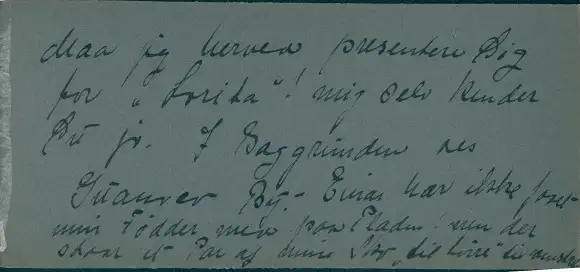 Maa jeg herved presentere Dig
for "Lorita"! mig selv kender
Du jo. I Baggrunden ses
By. - Einar har ikke faaet
mine Fødder med paa Pladen! men der
staar et Par af mine Sko "til Leie" til venstre